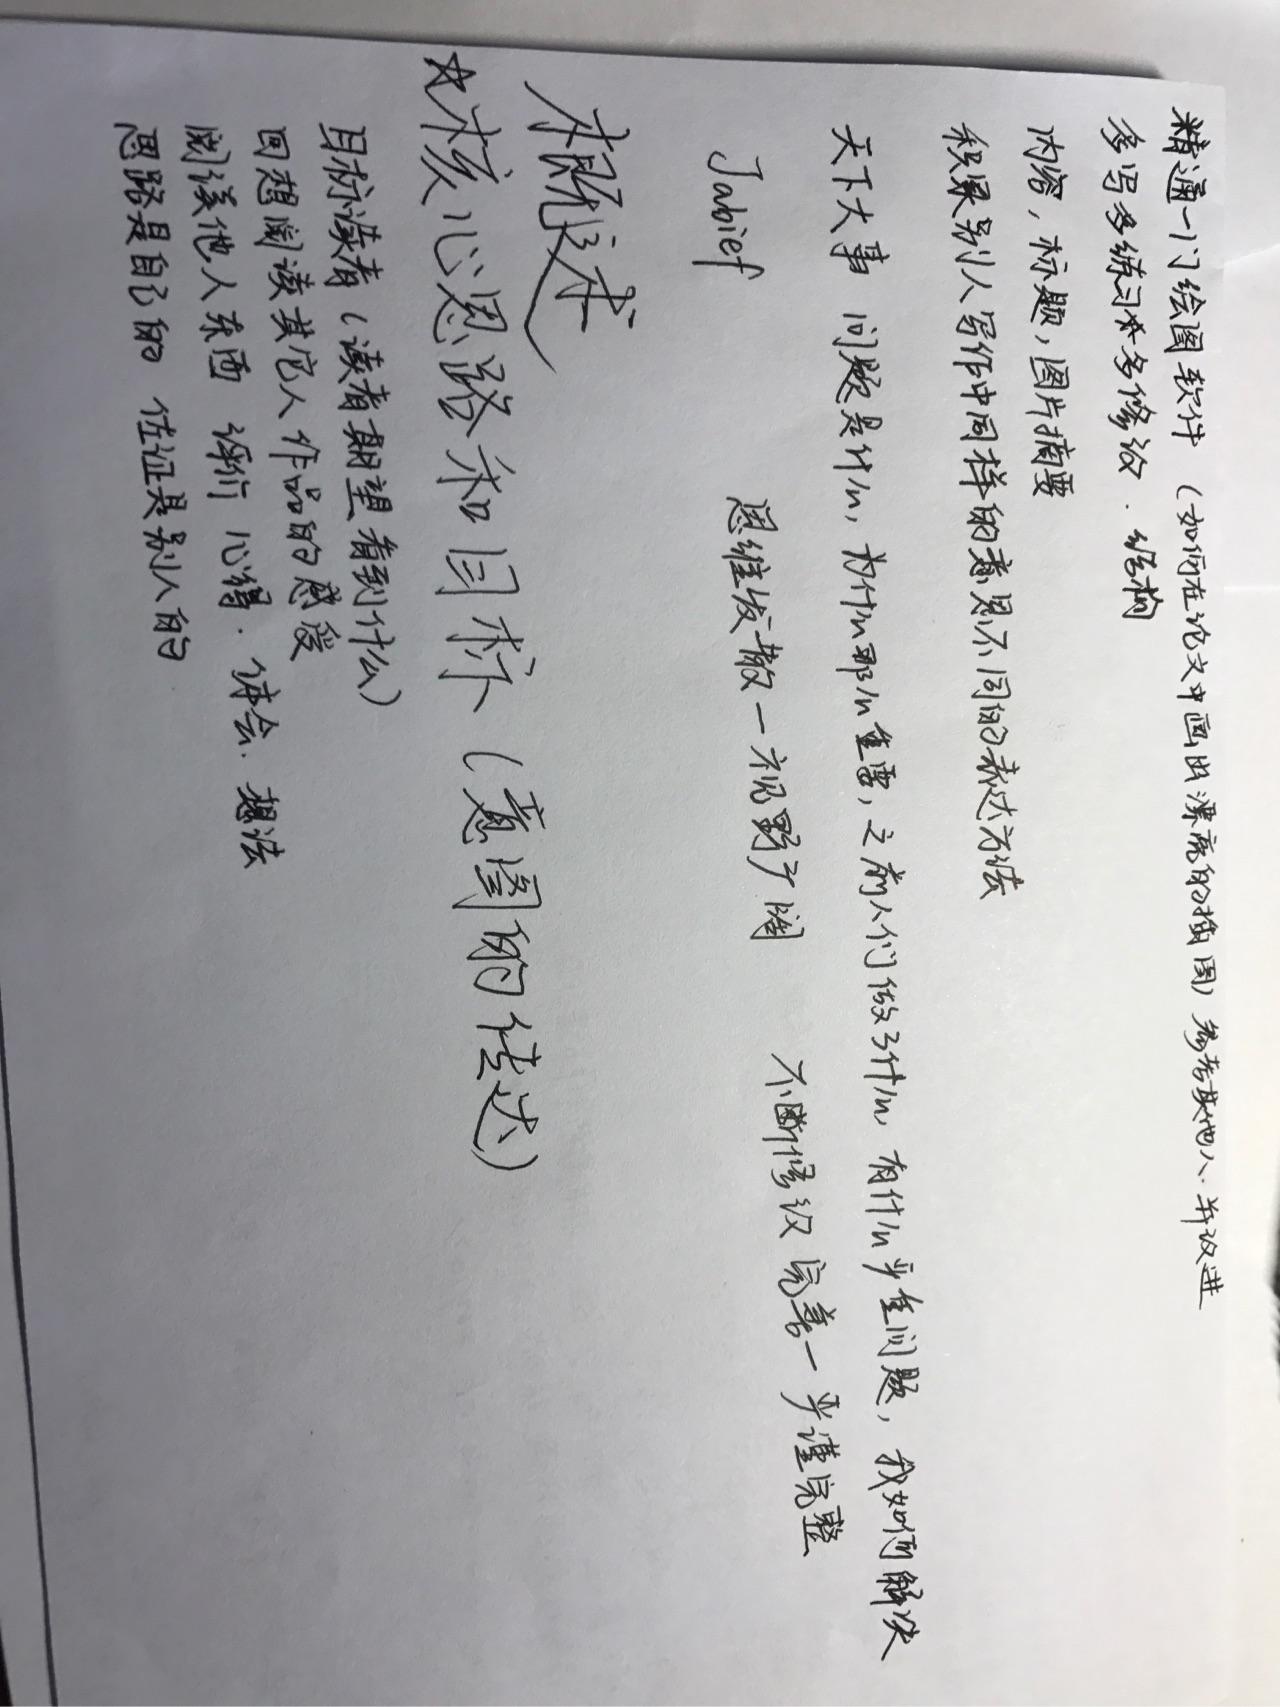 精通一门绘图软件（如何在论文中画出漂亮的插图）参考其他人.并改进
多写多练习多修改.结构
内容，标题，图片摘要
积累别人写作中同样的意思不同的表达方法
天下大事 问题是什么，为什么那么重要，之前人们做了什么，有什么严重问题，我如何解决
Jabief 思维发散一视野广阔 不断修改完善一严谨完整
概述
☆核心思路和目标（意图的传达）
目标读者（读者期望看到什么）
回想阅读其它人作品的感受
阅读他人东西 评价 心得.体会.想法
思路是自己的 佐证是别人的